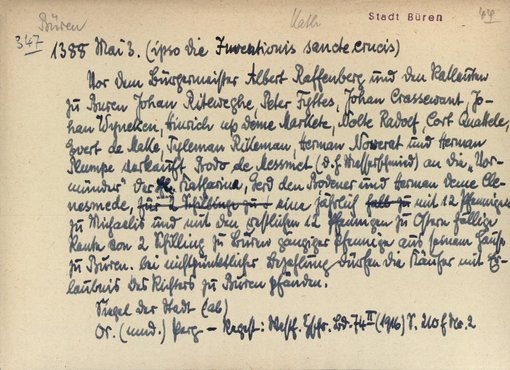 Büren Kath Stadt Büren
347
1388 Mai 3. (ipso die Inventionis sancte crucis)
Vor dem Bürgermeister Albert Raffenberg und den Ratleuten
zu Buren Johan Ritweghe, Peter Tyttes, Johan Crassewant, Jo-
han Wyneken, Hinrich up deme Markete, Nolte Radolf Cort Quattele,
Evert de Matte, Tyleman Rüleman, Herman Nowerat und Herman
Plumpe verkauft Bodo de Mesmict (d.h. Messerschmied) an die "Vor-
münder" der Katharina, Gerd den Bodener und Herman deme Cle-
nesmede, für 2 Schillinge zu eine jährlich halb zu mit 12 Pfennigen
zu Michaelis und mit den restlichen 12 Pfennigen zu Ostern fällige
Rente von 2 Schilling zu Büren gängiger Pfennige aus seinem Hause
zu Büren. bei nichtpünktlicher Bezahlung dürfen die Käufer mit Er-
laubnis des Richters zu Büren pfänden.
Siegel der Stadt (ab)
Or. (mnd.) Perg – Regest: Westf. Ztschr. Bd. 74 II (1916) S. 210f No. 2